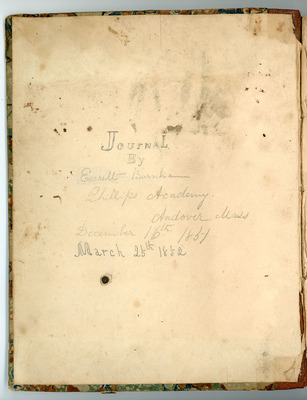 JOURNAL
By
Everett Burnham
Phillips Academy.
Andover Mass
December 16th 1851
March 25th 1852